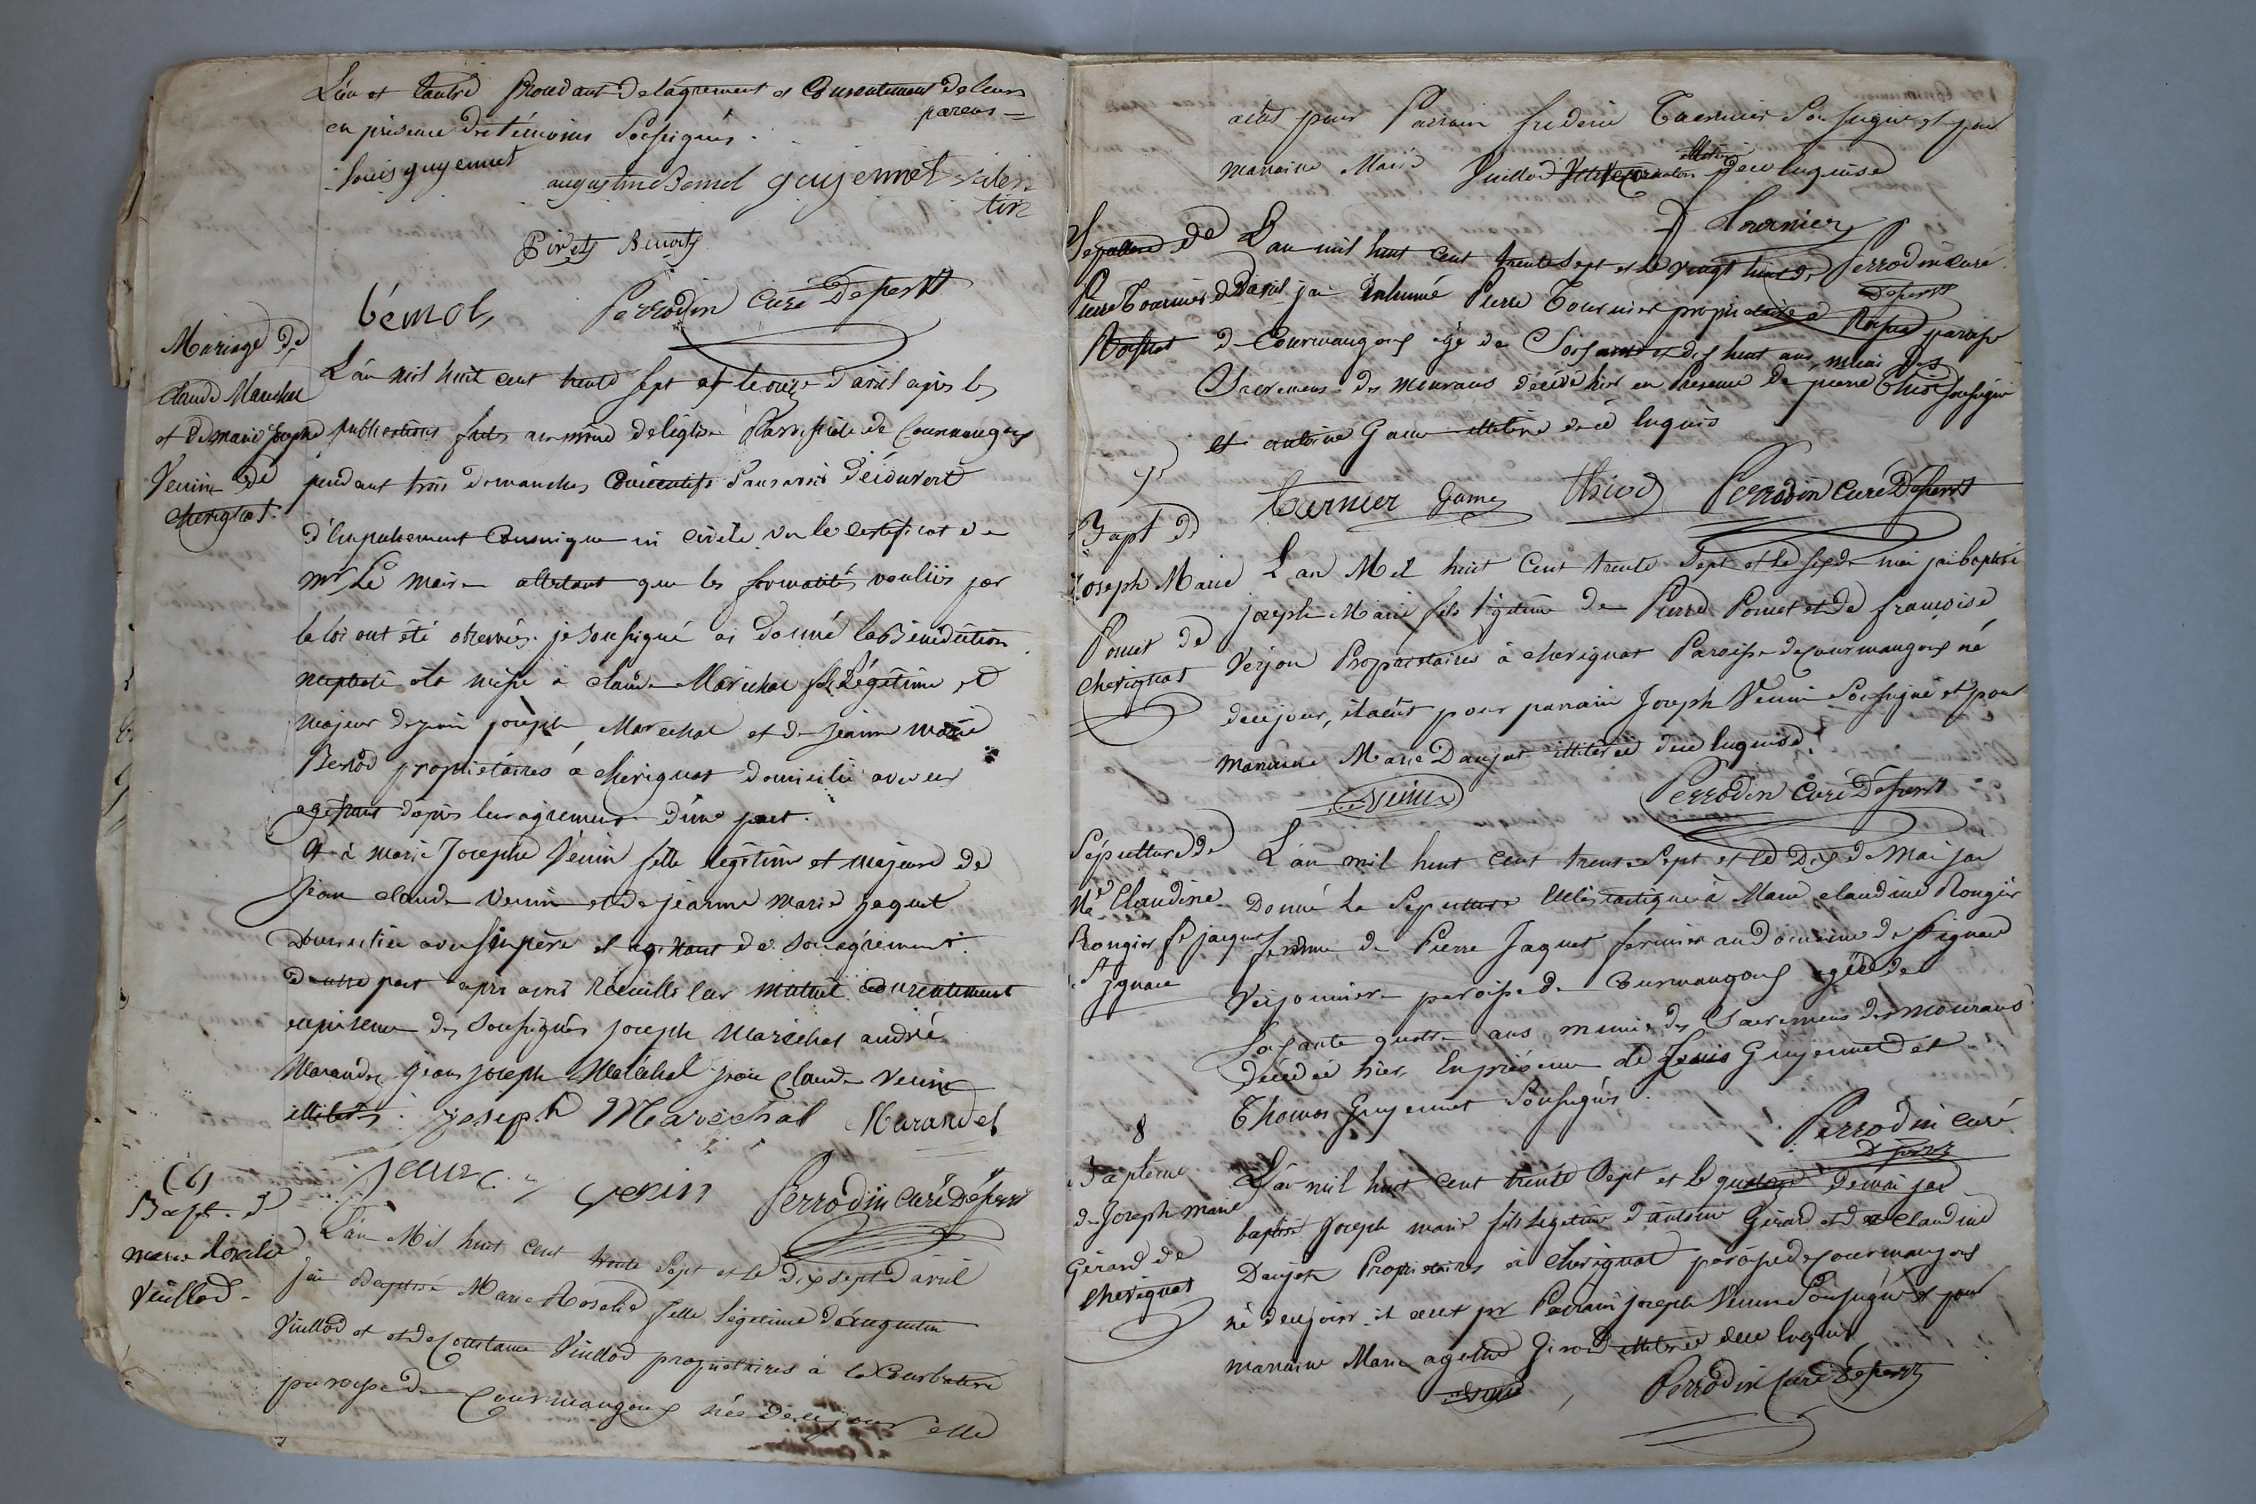 L'un et l'autre procedant de l'agrement et consentement de leurs
parens =
en présence des témoins soussignés.
Louis guyennet
augustine Bemol guyennet valen
tin
Pirets Benoits
bémol, Perrodin curé Desserv
Mariage de
Claude Marechal
et de marie josephe
Venin de
cherignat.
L'an mil huit cent trente sept et le onze d'avril après les
publications faites au prône de l'église Paroissiale de Courmangoux
pendant trois dimanches consécutifs sans avoir découvert
d'empechement canonique ni civil vu le certificat de
mr Le maire attestant que les formalités voulues par
la loi ont été observées. je soussigné ai donné la Bénédiction
nuptiale et la messe à claude Maréchal fils Légitime et
majeur de joseph Marechal et de jeanne marie
Benod propriétaires à cherignat domicilié avec eux
agissant d'après leur agrement d'une part.
Et à marie Josephe Venin fille légitime et majeure de
Jean claude Venin et de jeanne marie jaquet
domiciliée avec son père et agissant de son agrement.
d'autre part après avoir recueilli leur mutuel consentement
en présence des soussignés joseph Maréchal andré
Marandet jean joseph Maréchal jean claude Venin
illiterés. joseph Maréchal Marandet
jean c. venin Perrodin curé Desserv
(6)
Bapt. de
marie Rosalie
Vuillod.
L'an Mil huit cent trente sept et le dix sept d'avril
j'ai Baptisé Marie Rosalie fille légitime d'augustin
Vuillod et de Constance Vuillod propriétaires à la Courbatiere
paroisse de Courmangoux née de ce jour elle
a eût pour Parrain frederic Tournier soussigné et pour
marraine Marie Vuillod illiterée de ce enquise
f Tournier
Perrodin curé
Desserv
Sepulture de
Pierre Tournier de
Roissiat
L'an mil huit cent trente sept et le vingt huit
D'avril j'ai Inhumé Pierre Tournier propriétaire à Roissiat paroisse
de Courmangoux agé de soixante et dix huit ans, muni des
Sacremens des mourans décédé hier en Presence de pierre Thiod soussigné
et antoine Game illiteré de ce enquis
Tournier Game Thiod Perrodin curé Desserv
7
Bapt de
Joseph Marie
Pomet de
Cherignat
L'an Mil huit cent trente sept et le sept de mai j'ai baptisé
joseph Marie fils légitime de Pierre Pomet et de françoise
Verjon Propriétaires à cherignat Paroisse de courmangoux né
de ce jour, il a eût pour parrain Joseph Venin soussigné et pour
marraine Marie Daujat illiterée de ce enquise.
Venin Perrodin curé Desserv
Sépulture de
Me Claudine
Rongier fe jaquet
St Ignace
L'an mil huit cent trente sept et le Dix de Mai j'ai
Donné la sepulture Ecclésiastique à Marie claudine Rongier
femme de Pierre Jaquet fermier au domaine de St ignace
Verjonniere paroisse de Courmangoux agée de
soixante quatre ans munie des Sacremens des mourans
décédée hier En présence de Louis Guyennet et
Thomas Guyennet soussignés.
Perrodin curé
Desserv
8
Baptême
de Joseph marie
Gérard de
Cherignat
L'an mil huit cent trente sept et le quatorze de mai j'ai
baptisé joseph marie fils légitime d'antoine Gérard et de claudine
Daujat Propriétaires à cherignat paroisse de courmangoux
né de ce jour. il a eut pr Parrain joseph Venin Soussigné et pour
marraine Marie agathe Girod illiterée de ce enquise
Venin Perrodin curé Desserv